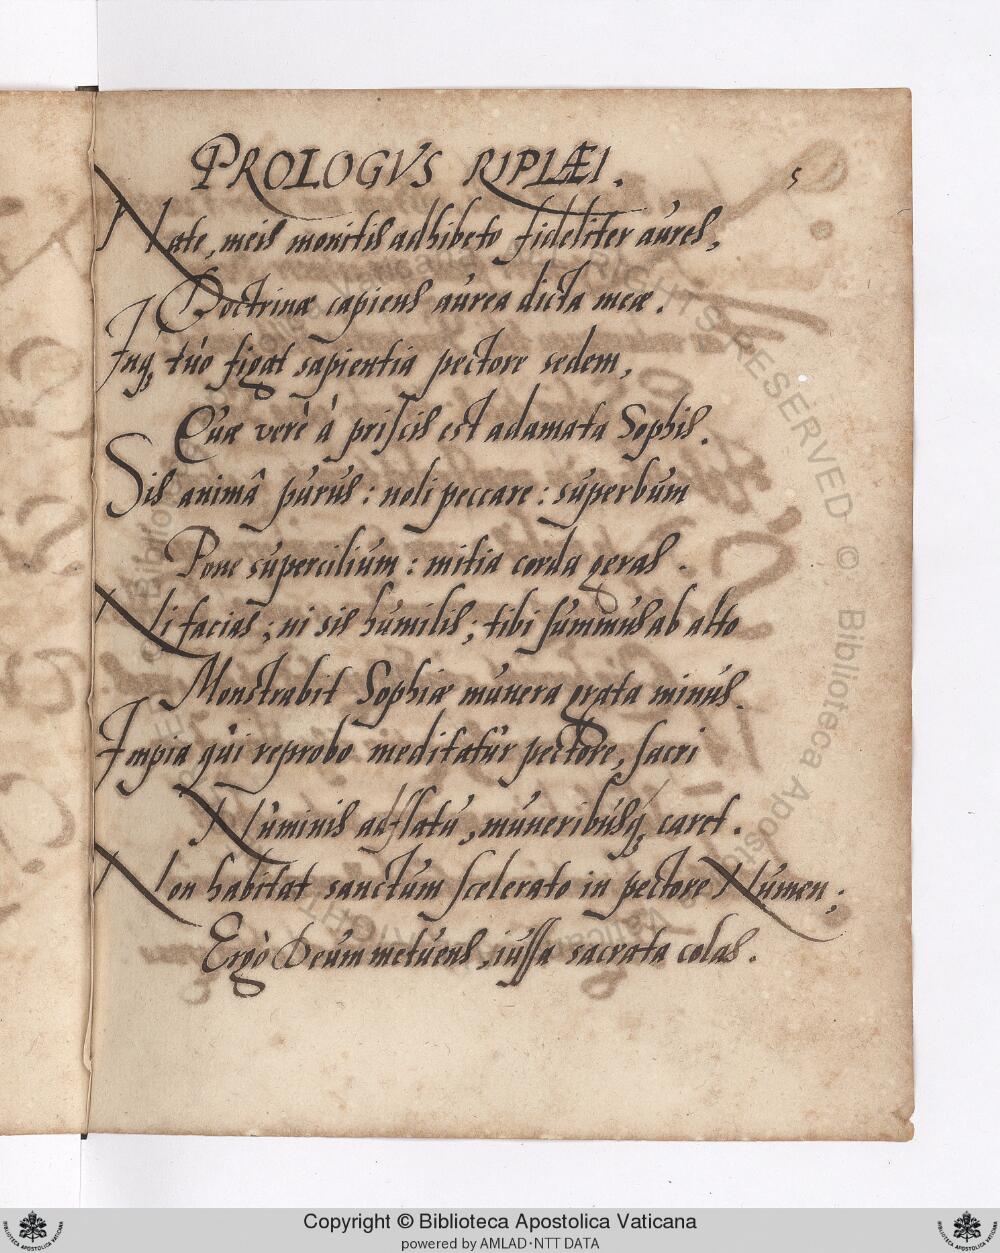 PROLOGVS RIPLÆI.
5
Nate, meis monitis adhibeto fideliter aures,
Doctrinæ capiens aurea dicta meæ.
Inq; tuo figat sapientia pectore sedem,
Quæ verè à priscis est adamata Sophis.
Sis animâ purus: noli peccare: superbum
Pone supercilium: mitia corda geras.
Ni facias; ni sis humilis; tibi summus ab alto
Monstrabit Sophiæ munera grata minus.
Impia qui reprobo meditatur pectore, sacri
Numinis adflatu, muneribusq; caret.
Non habitat sanctum scelerato in pectore Numen;
Ergò Deum metuens, iussa sacrata colas.
Copyright © Biblioteca Apostolica Vaticana
powered by AMLAD·NTT DATA